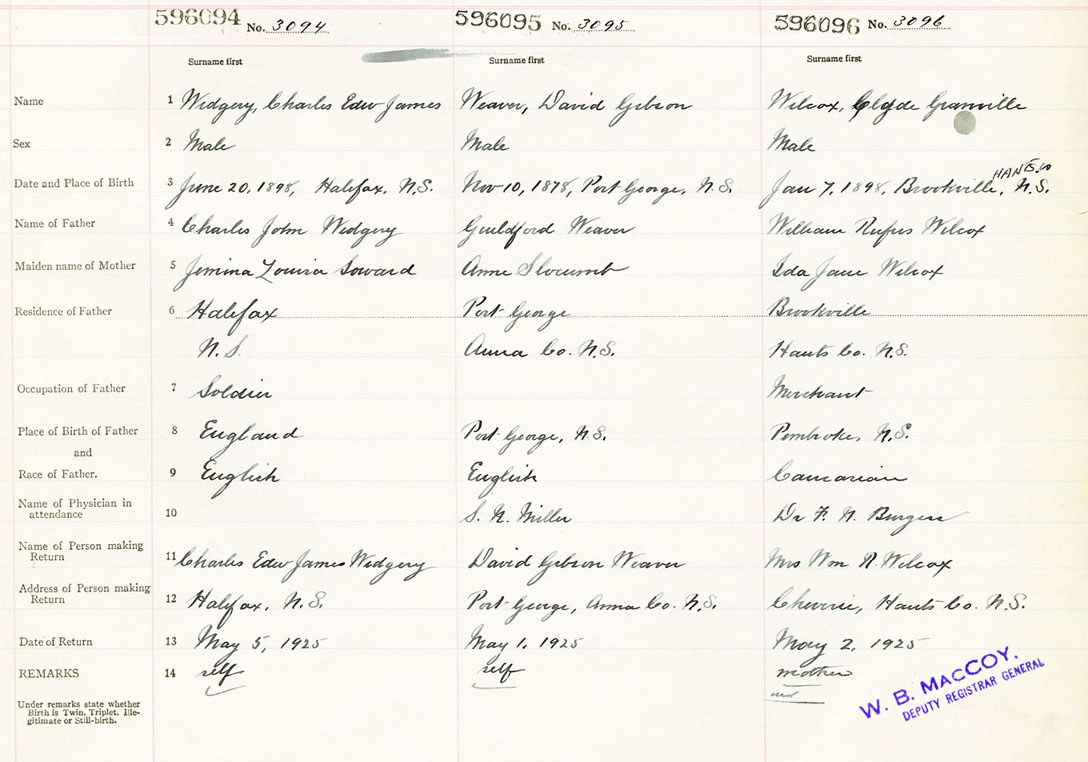 596094 No. 3094 596095 No. 3095 596096 No. 3096
Surname first Surname first Surname first
Name 1 Widgery, Charles Edw James Weaver, David Gibson Wilcox, Clyde Granville
Sex 2 Male Male Male
HANTS CO
Date and Place of Birth 3 June 20, 1898, Halifax, N.S. Nov 10, 1878, Port George, N.S. Jan 7, 1898, Brookville, N.S.
Name of Father 4 Charles John Widgery Guildford Weaver William Rufus Wilcox
Maiden name of Mother 5 Jemina Louisa Soward Anne Slocumb Ida Jane Wilcox
Residence of Father 6 Halifax Port George Brookville
N.S. Anna Co. N.S. Hants Co. N.S.
Occupation of Father 7 Soldier Merchant
Place of Birth of Father 8 England Port George, N.S. Pembroke, N.S.
and
Race of Father. 9 English English Caucasian
Name of Physician in
attendance 10 S. N. Miller Dr F. N. Burgess
Name of Person making
Return 11 Charles Edw James Widgery David Gibson Weaver Mrs Wm R. Wilcox
Address of Person making
Return 12 Halifax, N.S. Port George, Anna Co. N.S. Cheverie, Hants Co. N.S.
Date of Return 13 May 5, 1925 May 1. 1925 May 2, 1925
REMARKS 14 self self mother
W. B. MACCOY.
DEPUTY REGISTRAR GENERAL
Under remarks state whether
Birth is Twin, Triplet, Ille-
gitimate or Still-birth.